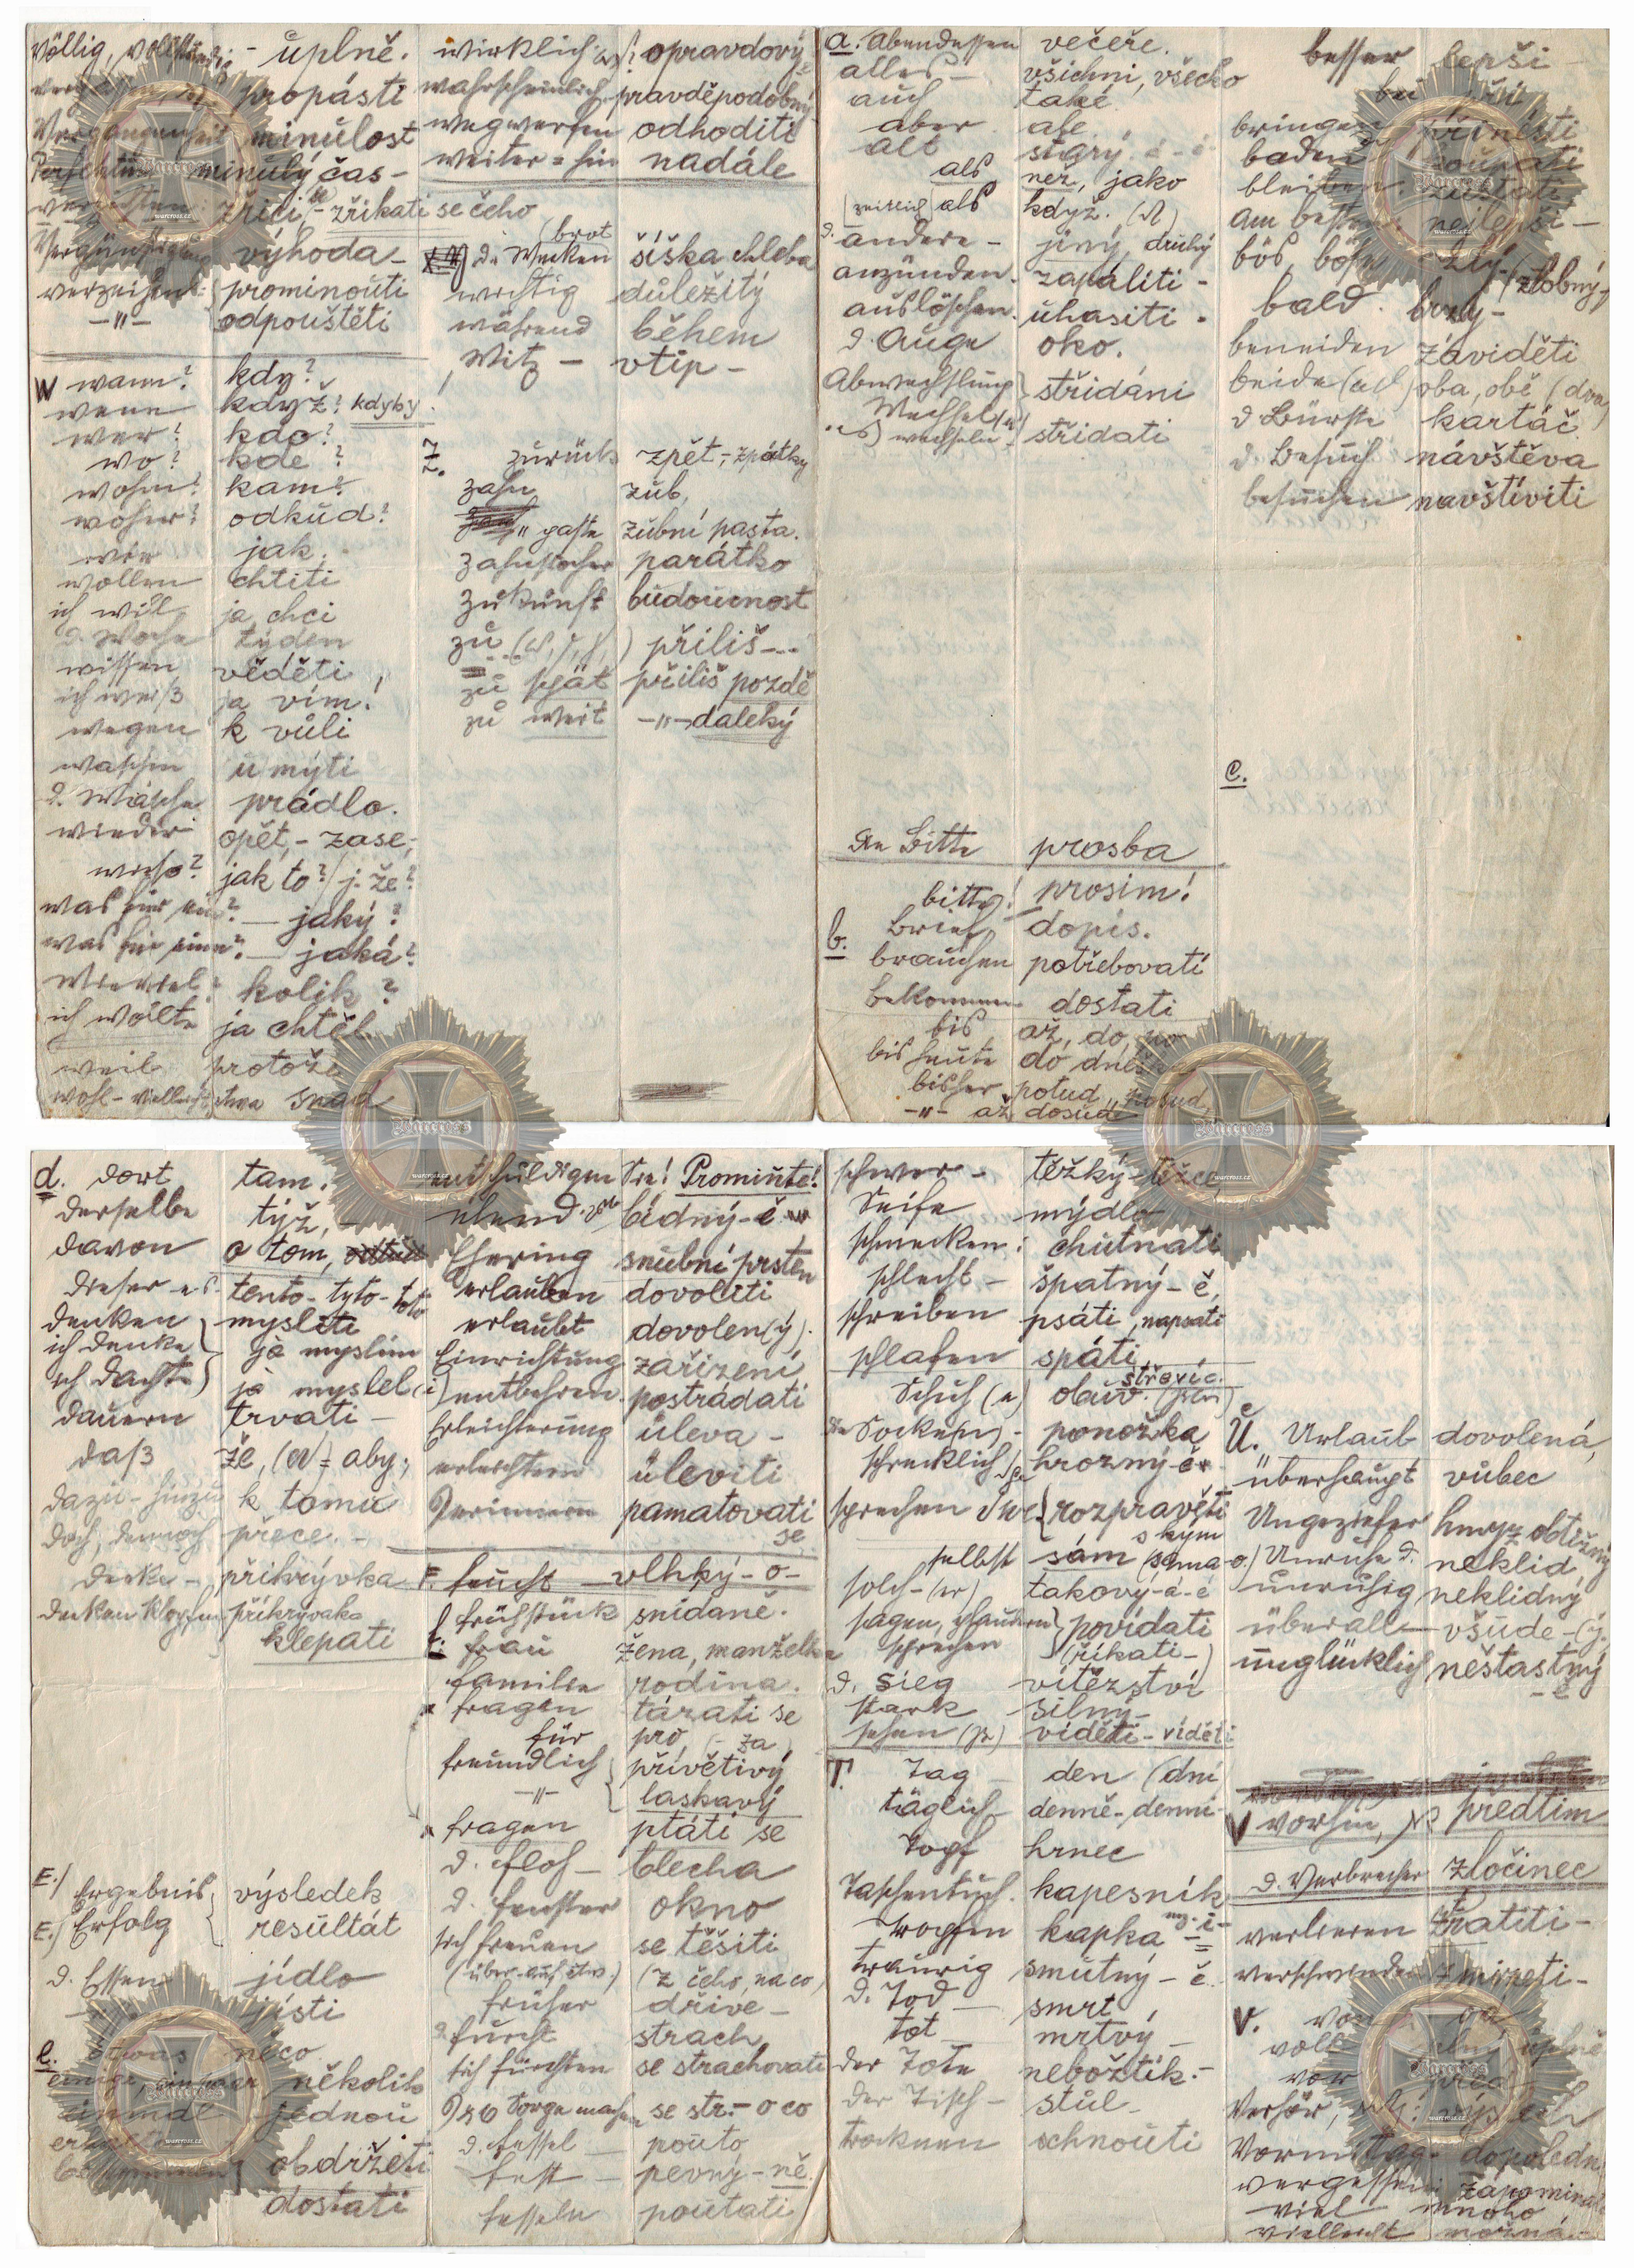 völlig, vollständig - úplně.
propásti
Vergangenheit minulost
Perfektum minulý čas -
verzichten: zříci se - zříkati se čeho
Vergünstigung výhoda -
verzeihen: prominouti
-"- odpouštěti
W wann? kdy?
wenn když? kdyby.
wer? kdo?
wo? kde?
wohin? kam?
woher? odkud?
wie jak.
wollen chtíti
ich will ja chci
d. Woche týden
wissen věděti
ich weiß ja vím!
wegen k vůli
waschen umýti
d. Wäsche prádlo.
wieder opět, - zase,
wieso? jak to? / j. že?
was für ein? - jaký?
was für eine? - jaká?
wieviel? kolik?
ich wollte ja chtěl
weil protože
wohl - vielleicht, etwa snad
wirklich opravdový
wahrscheinlich pravděpodobný
wegwerfen odhoditi
weiter = hin nadále
(brot
d. Wecken šiška chleba
wichtig důležitý
während během
Witz - vtip -
Z. zurück zpět, - zpátky
Zahn zub,
" paste zubní pasta.
Zahnstocher parátko
Zukunft budoucnost
zu příliš - ..
zu spät příliš pozdě
zu weit -"- daleký
a. Abendessen večeře.
alles - všichni, všecko
auch také
aber ale.
alt starý
als než, jako
(zeitlich) als když.
d. andere - jiný, druhý
anzünden - zapáliti -
auslöschen. uhasiti -
d. Auge oko.
Abwechslung } střídání
Wechsel
wechseln - střídati
die Bitte prosba
bitte! prosím!
b. Brief dopis.
brauchen potřebovati
bekommen dostati
bis až, do, po
bis heute do dneška
bisher potud, posud,
-"- až dosud
besser lepší
bei při
bringen přinésti
baden koupati
bleiben. zůstati
am besten nejlepší -
bös, böse zlý - (zlobný)
bald. brzy -
beneiden záviděti
beide oba, obě (dva)
d. Bürste kartáč
d. Besuch návštěva
besuchen navštíviti
c.
d. dort tam.
derselbe týž, -
davon o tom,
dieser - es - tento - tyto - toto
denken mysliti
ich denke já myslím
ich dachte já myslel
dauern trvati -
daß že, = aby,
dazu - hinzu k tomu
doch, dennoch přece. -
Decke - přikrývka
Decken klopfen přikrývka
klepati
E.) Ergebnis výsledek
E.) Erfolg resultát
d. Essen jídlo
jísti
e. etwas něco
einige, ein paar několik
einmal jednou
obdržeti
bekommen dostati
entschuldigen Sie! Prominute!
elend bídný - ě
Ehering snubní prsten
erlauben dovoliti
erlaubt dovolen(ý).
Einrichtung zařízení
entbehren. postrádati
Erleichterung úleva -
erleichtern úleviti
erinnern pamatovati
se
F. feucht - vlhký - o -
frühstück snídaně.
frau žena, manželka
familie rodina.
fragen tázati se
für pro, (- za)
freundlich přívětivý
-"- laskavý
fragen ptáti se
d. floh - blecha
d. fenster okno
sich freuen se těšiti
(über - auf etw.) (z čeho, na co)
früher dříve -
d. furcht strach
sich fürchten se strachovati
Sorge machen se str. - o co
d. fessel - pouto
fest - pevný - ně.
fesseln poutati
schwer - těžký - těžce
Seife mýdlo
schmecken: chutnati
schlecht - špatný - ě,
schreiben psáti, napsati
schlafen spáti
střevíc.
Schuh (e) obuv.
die Socke(n) - ponožka
schrecklich hrozný - ě
sprechen rozpravěti
s kým
selbst sám (sama - o.)
solch - (er) takový - á - é
sagen, plaudern povídati
sprechen (říkati -)
d. Sieg vítězství
stark silný -
sehen viděti - vídět
T. Tag - den (dni
täglich - denně - denní -
Topf hrnec
Taschentuch. kapesník
tropfen kapka
traurig smutný - ě.
d. Tod - smrt
tot mrtvý -
der Tote nebožtík. -
der Tisch - stůl -
trocknen schnouti
U. Urlaub dovolená,
überhaupt vůbec
Ungeziefer hmyz obtížný
Unruhe d. neklid
unruhig neklidný
überall - všude - (ý.
unglücklich neštastný
- ě
V vorhin, předtím
d. Verbrecher zločinec
verlieren ztratiti -
verschwinden zmizeti -
V. von od
voll plný úplně
vor před -
Verhör, výslech
Vormittag - dopoledne
vergessen zapomínat
viel mnoho
vielleicht možná -
warcross.cz